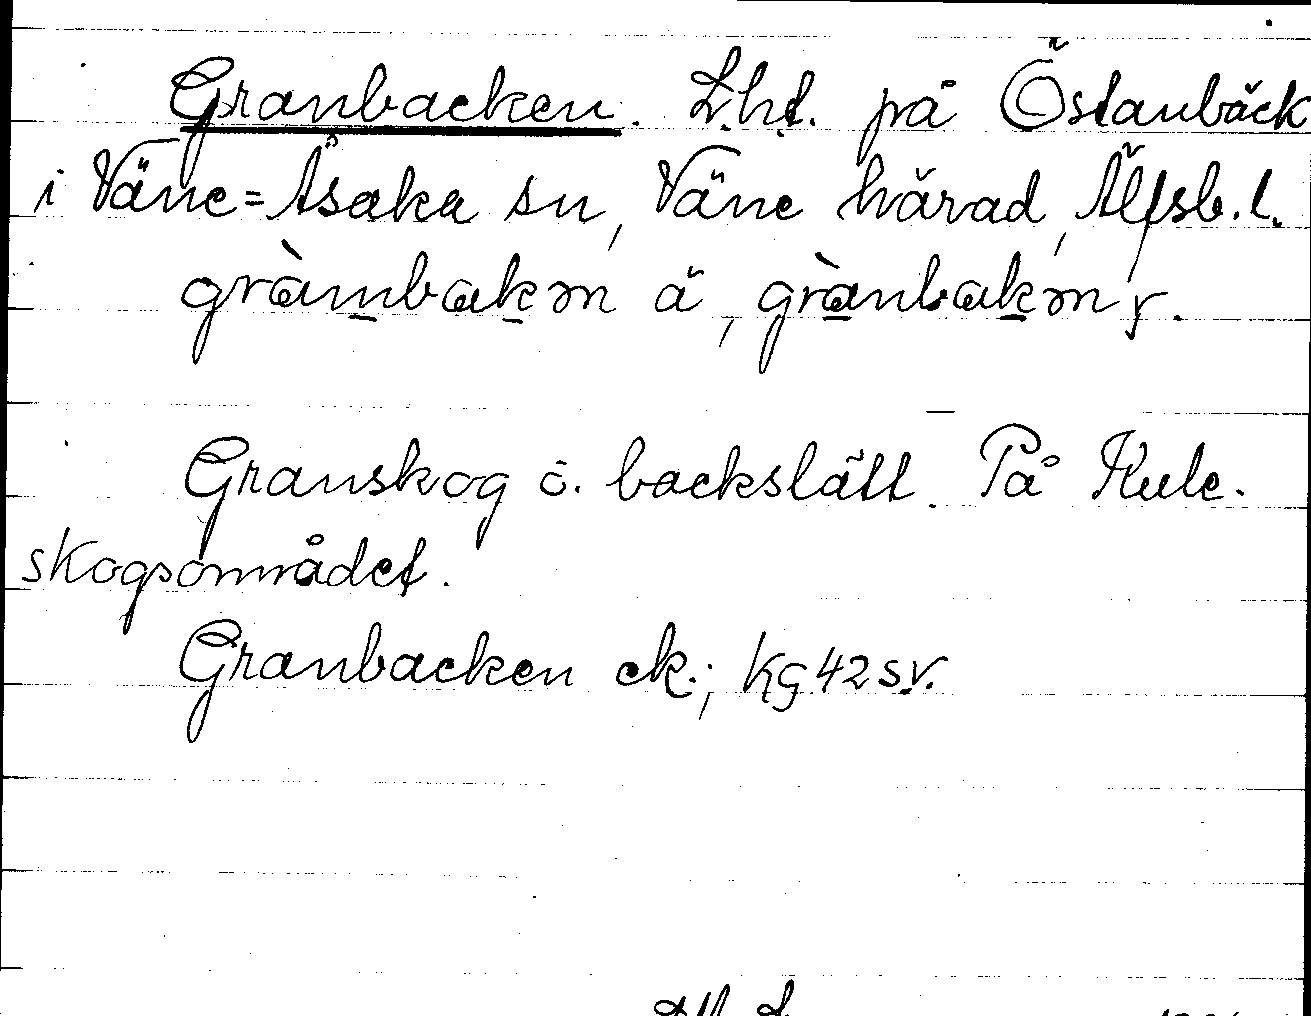 Granbacken. L.h.t. på Östanbäck
i Väne=Åsaka sn, Väne härad, Älfsb.l.
gràmbakm ä, grànbakm y.
Granskog o. backslätt. På Kule-
skogsområdet.
Granbacken ek.; kg 42 s.v.